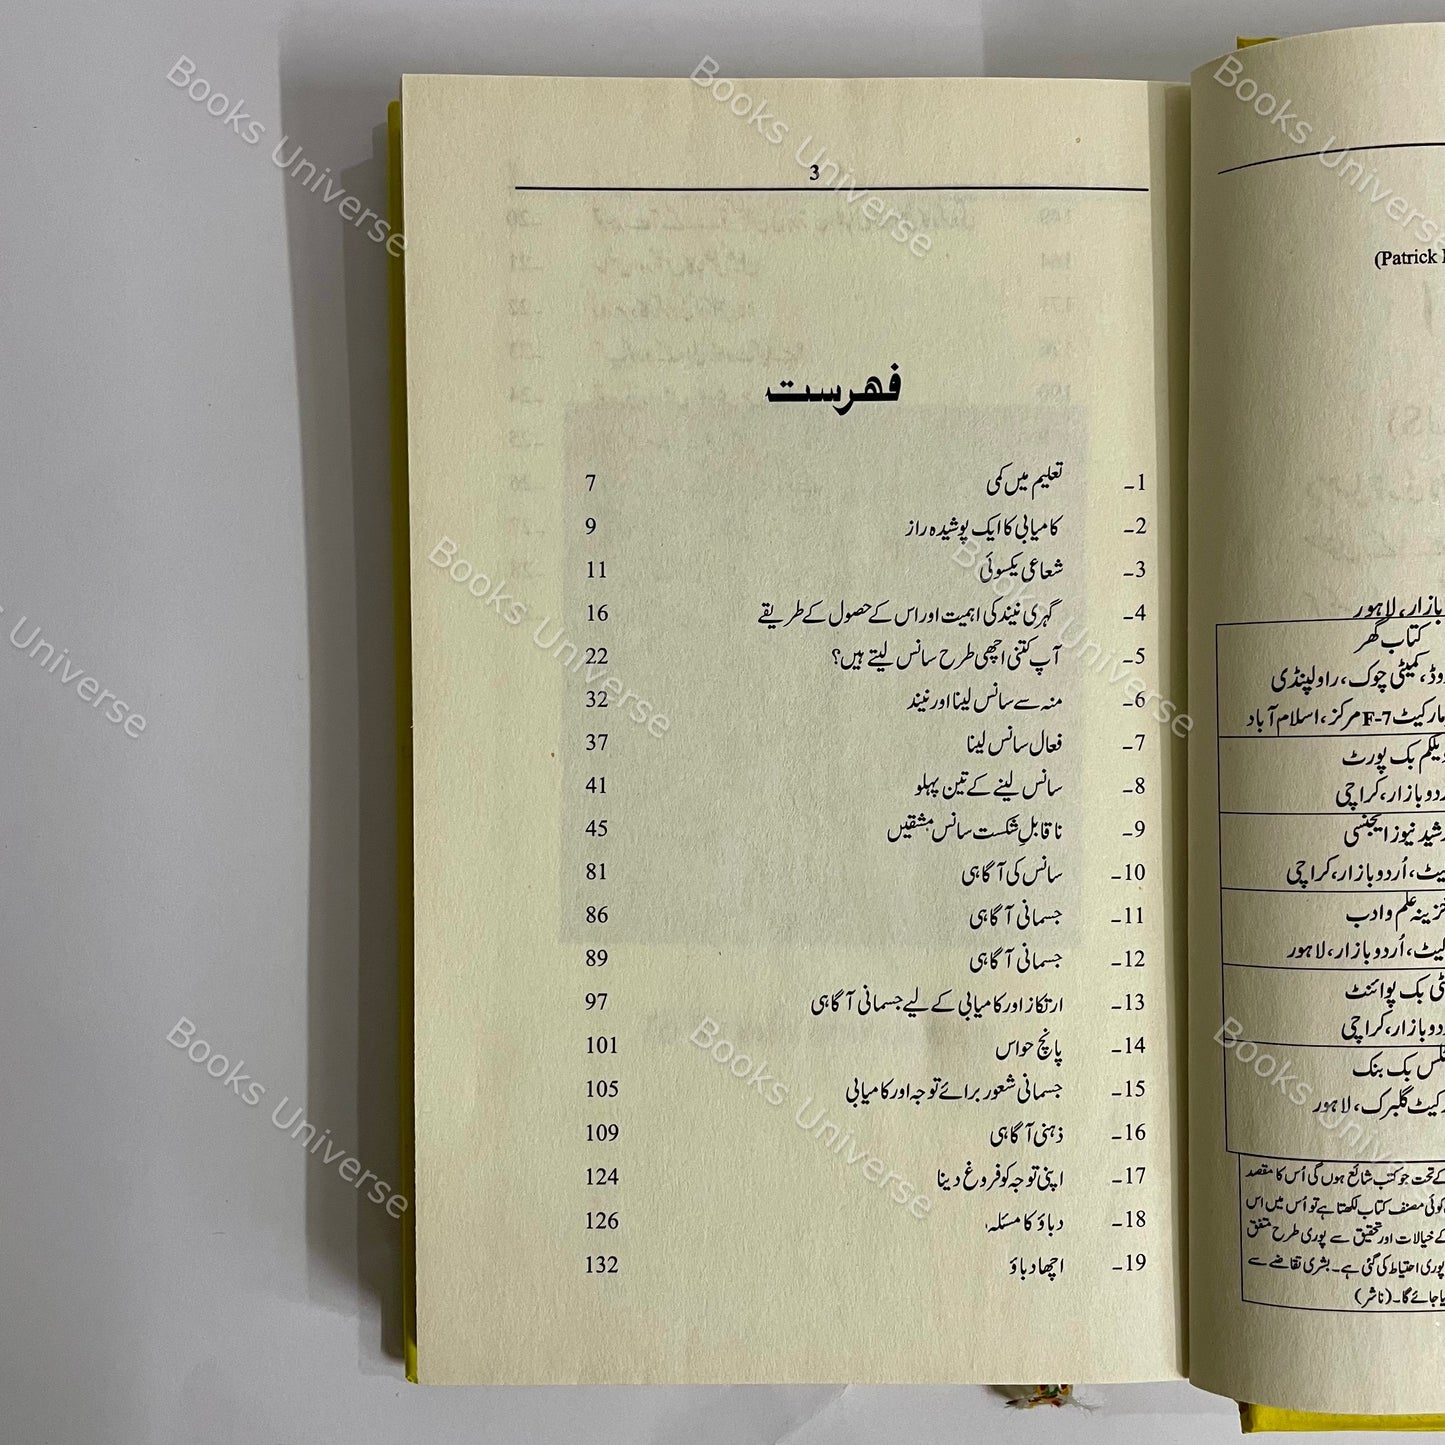 3
فہرست
1۔ تعلیم میں کمی 7
2۔ کامیابی کا ایک پوشیدہ راز 9
3۔ شعاعی یکسوئی 11
4۔ گہری نیند کی اہمیت اور اس کے حصول کے طریقے 16
5۔ آپ کتنی اچھی طرح سانس لیتے ہیں؟ 22
6۔ منہ سے سانس لینا اور نیند 32
7۔ فعال سانس لینا 37
8۔ سانس لینے کے تین پہلو 41
9۔ ناقابلِ شکست سانس مشقیں 45
10۔ سانس کی آگاہی 81
11۔ جسمانی آگاہی 86
12۔ جسمانی آگاہی 89
13۔ ارتکاز اور کامیابی کے لیے جسمانی آگاہی 97
14۔ پانچ حواس 101
15۔ جسمانی شعور برائے توجہ اور کامیابی 105
16۔ ذہنی آگاہی 109
17۔ اپنی توجہ کو فروغ دینا 124
18۔ دباؤ کا مسئلہ 126
19۔ اچھا دباؤ 132
(Patrick
بازار، لاہور
کتاب گھر
کمیٹی چوک، راولپنڈی
مارکیٹ F-7 مرکز، اسلام آباد
ویلکم بک پورٹ
اردو بازار، کراچی
نیوز ایجنسی
اُردو بازار، کراچی
خزینہ علم و ادب
اُردو بازار، لاہور
بک پوائنٹ
اردو بازار، کراچی
بک بنک
گلبرک، لاہور
کے تحت جو کتب شائع ہوں گی اُس کا مقصد
کوئی مصنف کتاب لکھتا ہے تو اُس میں اس
کے خیالات اور تحقیق سے پوری طرح متفق
پوری احتیاط کی گئی ہے۔ بشری تقاضے سے
جائے گا۔ (ناشر)
Books Universe
Books Universe
Books Universe
Universe
Books Universe
Books Universe
Books Universe
Books Universe
Books Universe